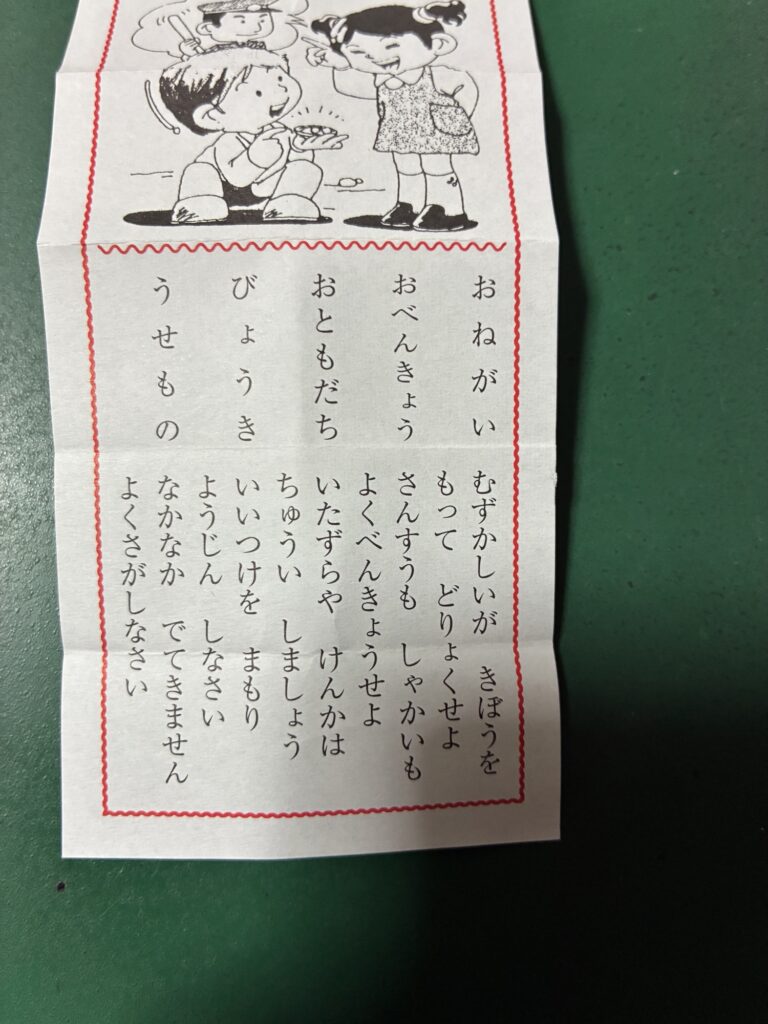 おねがい　むずかしいが　きぼうを
もって　どりょくせよ
おべんきょう　さんすうも　しゃかいも
よくべんきょうせよ
おともだち　いたずらや　けんかは
ちゅうい　しましょう
びょうき　いいつけを　まもり
ようじん　しなさい
うせもの　なかなか　でてきません
よくさがしなさい